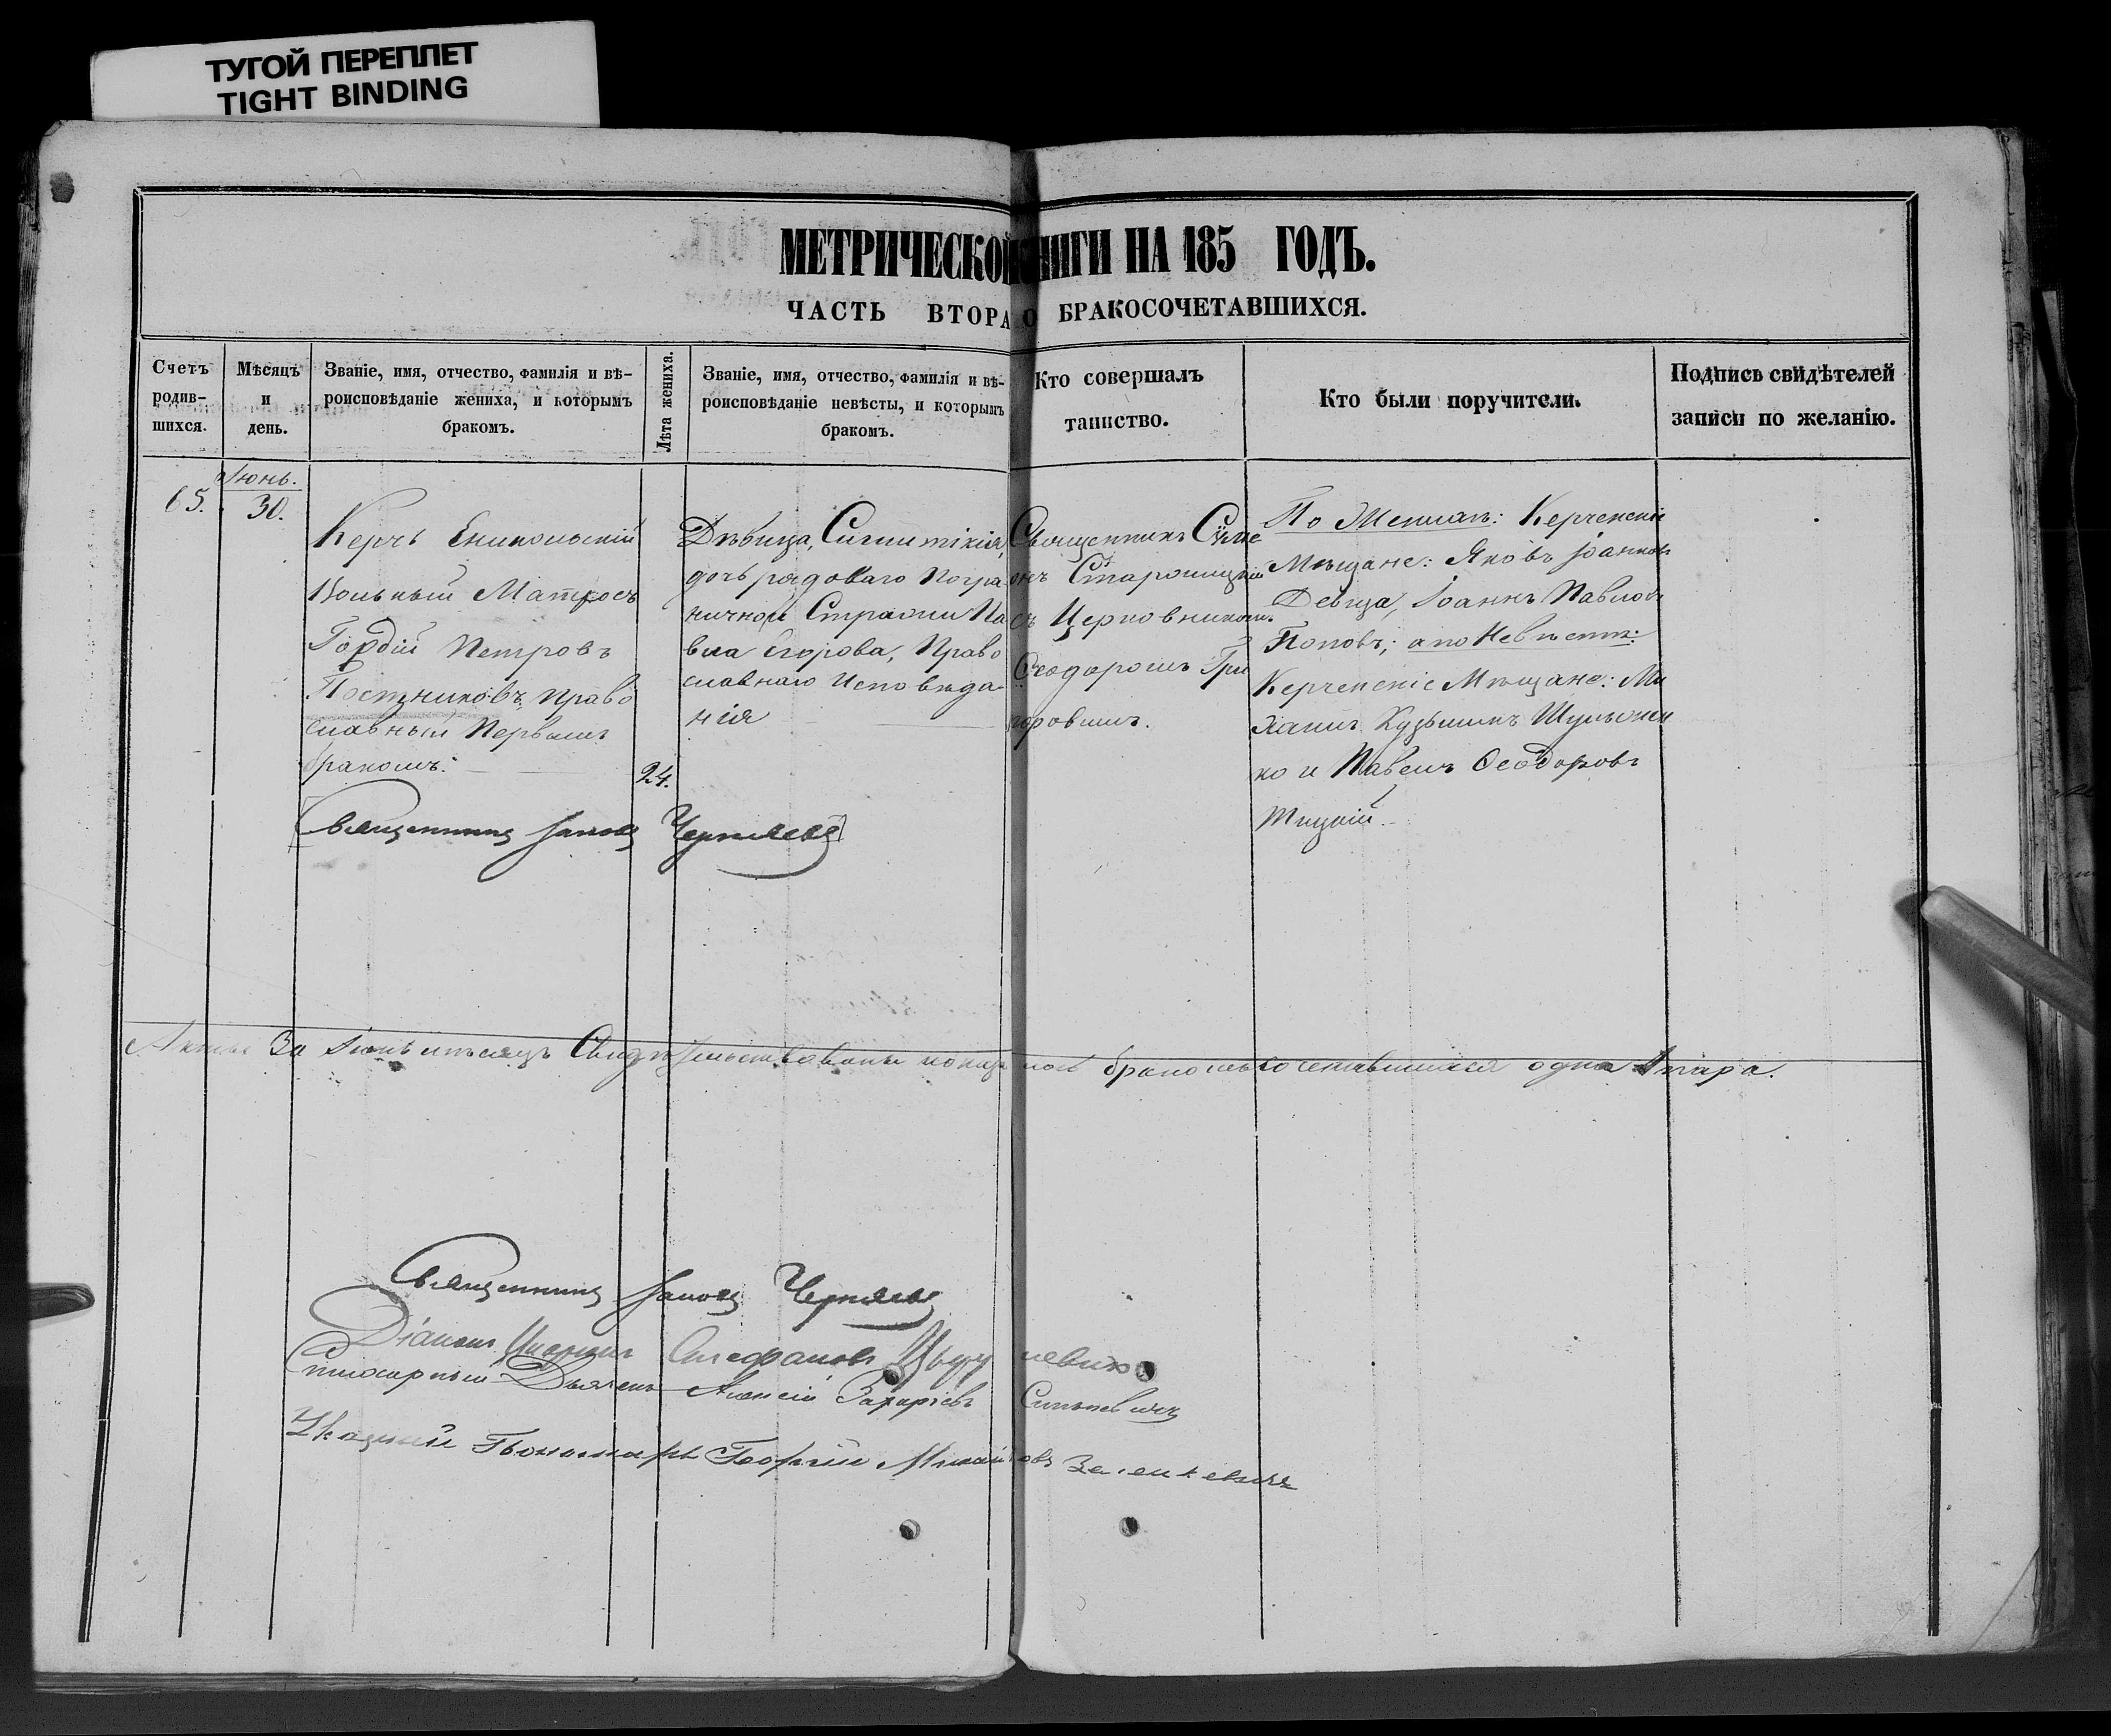 ТУГОЙ ПЕРЕПЛЕТ
TIGHT BINDING
МЕТРИЧЕСКОЙ КНИГИ НА 185 ГОДЪ.
ЧАСТЬ ВТОРА О БРАКОСОЧЕТАВШИХСЯ.
Счетъ
родив-
шихся.
Мѣсяцъ
и
день.
Званіе, имя, отчество, фамилія и вѣ-
роисповѣданіе жениха, и которымъ
бракомъ.
Лѣта жениха.
Званіе, имя, отчество, фамилія и вѣ-
роисповѣданіе невѣсты, и которымъ
бракомъ.
Кто совершалъ
таинство.
Кто были поручители.
Подпись свидѣтелей
записи по желанію.
65.
Іюнь.
30.
Керчь Еникольскій
Вольный Матросъ
Гордій Петровъ
Постниковъ, Право
славный Первымъ
бракомъ.
24.
Дѣвица,
дочь рядоваго Погра
ничной Стражи Па
вла Егорова, Право
славнаго Исповѣда-
нія
Священникъ Сѵме
онъ Старошицкій
съ Церковникомъ
Ѳеодоромъ Гри
горовымъ.
По Женихѣ: Керченскіе
Мѣщане: Яковъ Іоанновъ
Девица, Іоаннъ Павловъ
Поповъ; а по Невѣстѣ:
Керченскіе Мѣщане: Ми
хаилъ Кузьминъ Шульжен
ко и Павелъ Ѳеодоровъ
Священникъ Іаковъ Черняевъ
За Іюнь мѣсяцъ Свидѣтельствованы бракомъ сочетавшихся одна пара.
Священникъ Іаковъ Черняевъ
Діаконъ Стефановъ
Алексій Захаріевъ
Пономарь Георгій